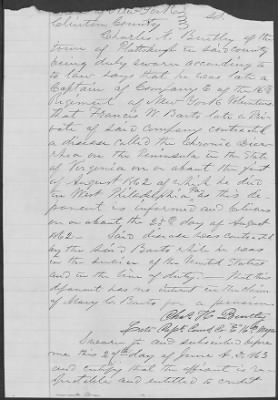 State of New York } ss.
Clinton County
Charles A. Bentley of the
town of Plattsburgh in said county
being duly sworn according to
to law says that he was late a
Captain of Company E of the 16th
Regiment of New York Volunteers
that Francis W. Barts late a Pri-
vate of said Company contracted
a disease called the Chronic Diar-
rhea on the Peninsula in the State
of Virginia on or about the first
of August 1862 of which he died
in West Philadelphia as this de-
ponent is informed and believes
on or about the 25th day of August
1862 — Said disease was contracted
by the said Barts while he was
in the service of the United States
and in the line of duty — that this
deponent has no interest in the claim
of Mary L. Barts for a pension
Late Capt. Comd. Co. E 16th
Sworn to and subscribed before
me this 27th day of June A. D. 1863
and certify that the affiant is re-
spectable and entitled to credit